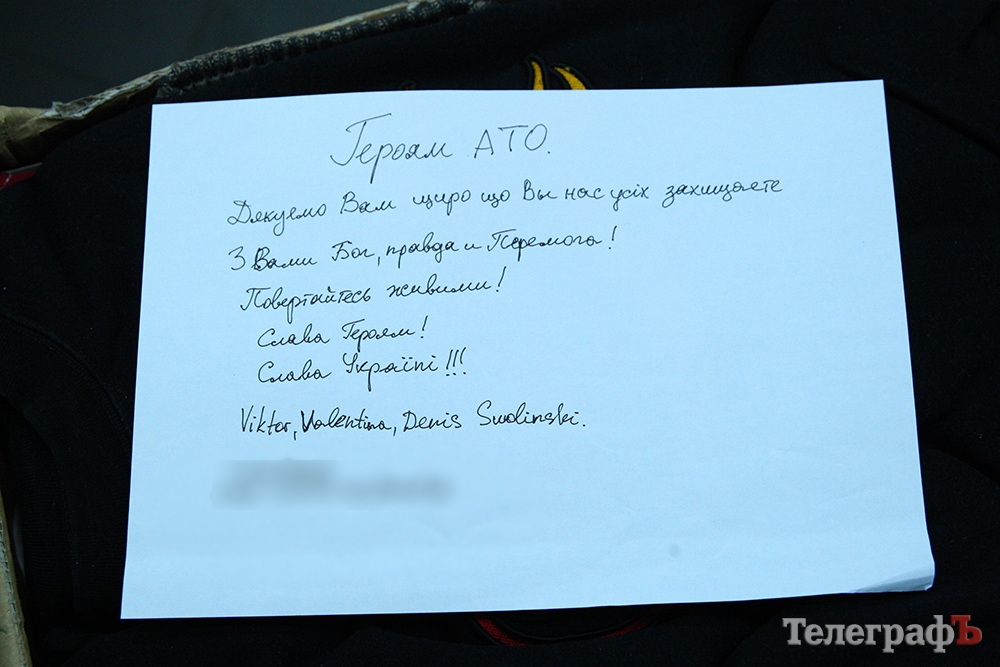 Героям АТО.
Дякуемо Вам щиро що Вы нас усіх захищаете
З Вами Бог, правда и Перемога!
Повертайтесь живими!
Слава Героям!
Слава Україні!!!
Viktor, Valentina, Denis Smolinski.
ТелеграфЪ